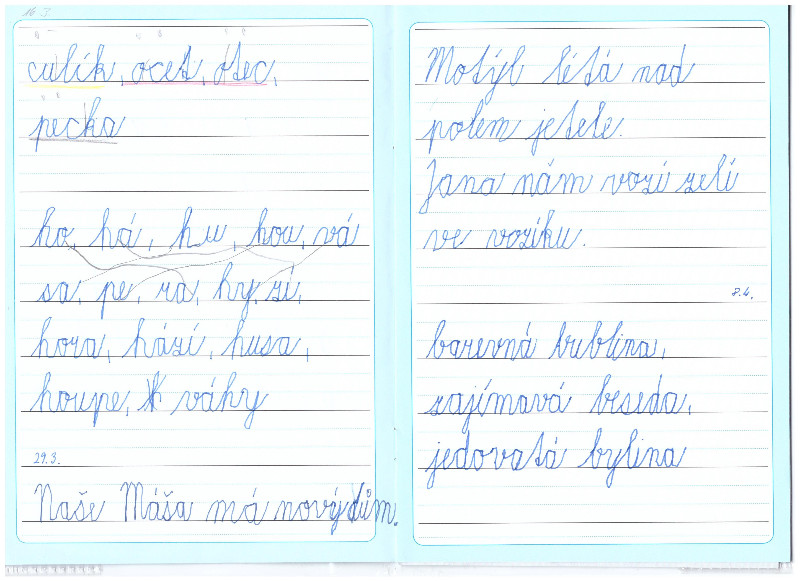 culík, ocet, otec,
pecka
ho, há, hu, hou, vá
sa, pe, ra, hy, zí,
hora, hází, husa,
houpe, váhy
29.3.
Naše Máša má nový dům.
Motýl létá nad
polem jetele.
Jana nám vozí zelí
ve vozíku.
8.4.
barevná bublina,
zajímavá beseda,
jedovatá bylina